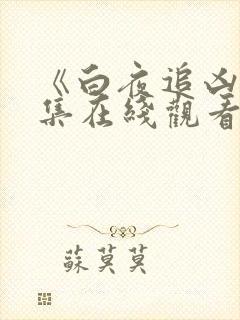 《白夜追凶
集在綫觀看
蘇莫莫